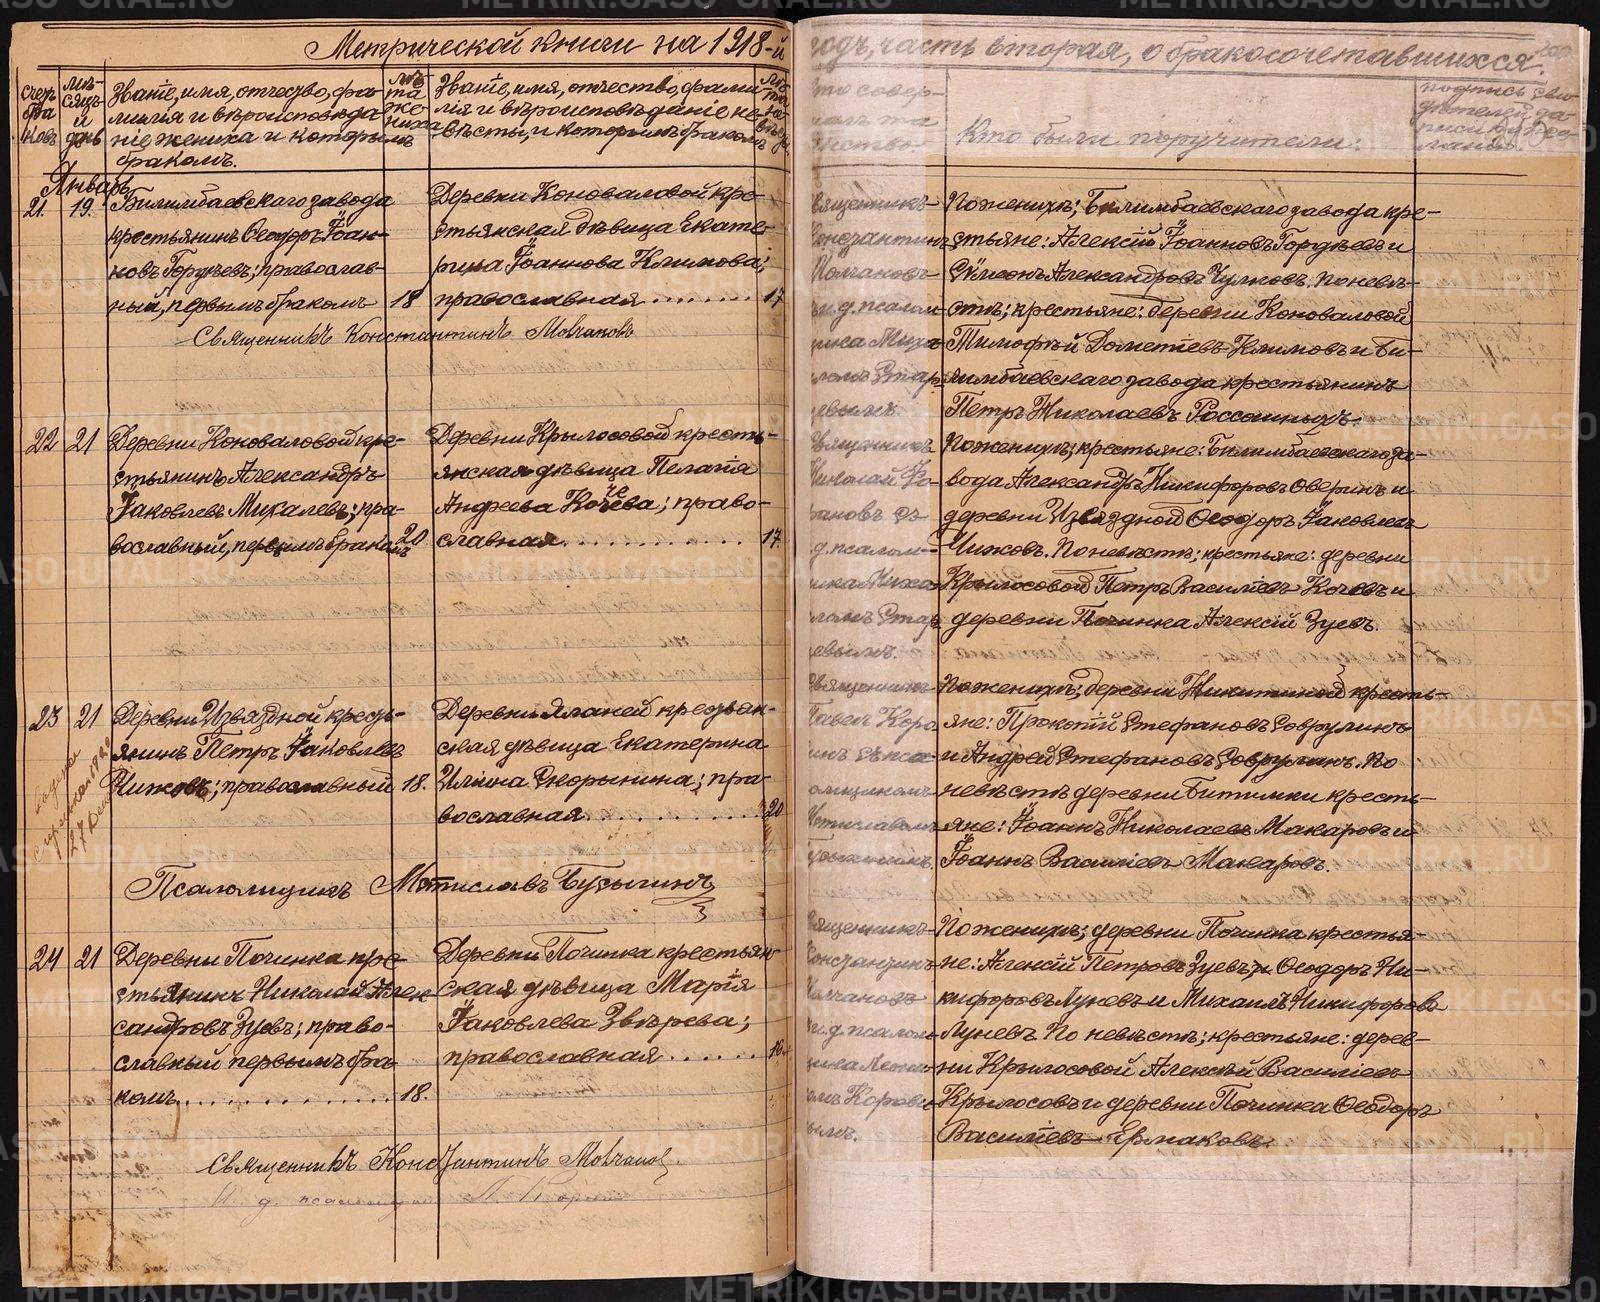 Метрической книги на 1918-й
годъ, часть вторая, о бракосочетавшихся.
счетъ
бра
ковъ
мѣ-
сяцъ
и
день
Званіе, имя, отчество, фа-
милія и вѣроисповѣда-
ніе жениха и которымъ
бракомъ.
лѣ-
та
же-
ниха
Званіе, имя, отчество, фами
лія и вѣроисповѣданіе не-
вѣсты, и которымъ бракомъ
Кто совер-
Кто были поручители:
подпись сви
дѣтелей за-
писи по Же-
ланію.
Январь
21. 19.
Билимбаевскаго завода
крестьянинъ Ѳеодоръ Іоан-
новъ Гордѣевъ; православ-
ный, первымъ бракомъ 18
Деревни Коноваловой кре-
стьянская дѣвица Екате-
рина Іоаннова Климова;
православная........ 17
Священникъ Константинъ Молчановъ
священникъ
Константинъ
Молчановъ
и. д. псалом-
По женихѣ; Билимбаевскаго завода кре-
стьяне: Алексій Іоанновъ Гордѣевъ и
Сѵмеонъ Александровъ Чулковъ. По невѣ-
стѣ; крестьяне: деревни Коноваловой
Тимофѣй Дометіевъ Климовъ и Би-
лимбаевскаго завода крестьянинъ
Петръ Николаевъ Россошныхъ.
22 21
Деревни Коноваловой кре-
стьянинъ Александръ
Іаковлевъ Микалевъ; пра-
вославный, первымъ бракомъ 20
Деревни Крылосовой кресть-
янская дѣвица Пелагія
Андреева Кочева; право-
славная............ 17.
священникъ
Николай
д. псалом-
По женихѣ; крестьяне: Билимбаевскаго за-
вода Александръ Никифоровъ Оверинъ и
деревни Извѣздной Ѳеодоръ Іаковлевъ
Чижовъ. По невѣстѣ; крестьяне: деревни
Крылосовой Петръ Василіевъ Кочевъ и
деревни Починка Алексій Зуевъ.
23 21
Деревни Извѣздной кресть-
янинъ Петръ Іаковлевъ
Чижовъ; православный 18.
Деревни Яланей крестьян-
ская дѣвица Екатерина
Иліина Скорынина; пра-
вославная............ 20
Псаломщикъ Мстиславъ Бусыгинъ
священникъ
Павелъ
По женихѣ; деревни Никитиной кресть-
яне: Прокопій Стефановъ Соврулинъ
и Андрей Стефановъ Соврулинъ. По
невѣстѣ деревни Битимки кресть-
яне: Іоаннъ Николаевъ Макаровъ и
Іоаннъ Василіевъ Макаровъ.
24 21
Деревни Починка кре-
стьянинъ Николай Алек-
сандровъ Зуевъ; право-
славный первымъ бра-
комъ............... 18.
Деревни Починка крестьян
ская дѣвица Марія
Іаковлева Звѣрева;
православная...... 16.
Священникъ Константинъ Молчановъ.
И. д. псаломщика
священникъ
Константинъ
Молчановъ
и. д. псалом-
По женихѣ; деревни Починка крестья-
не: Алексій Петровъ Зуевъ, Ѳеодоръ Ни-
кифоровъ Луневъ и Михаилъ Никифоровъ
Луневъ По невѣстѣ; крестьяне: дерев-
ни Крылосовой Алексѣй Василіевъ
Крылосовъ и деревни Починка Ѳеодоръ
Василіевъ Ермаковъ.
METRIKI.GASO-URAL.RU